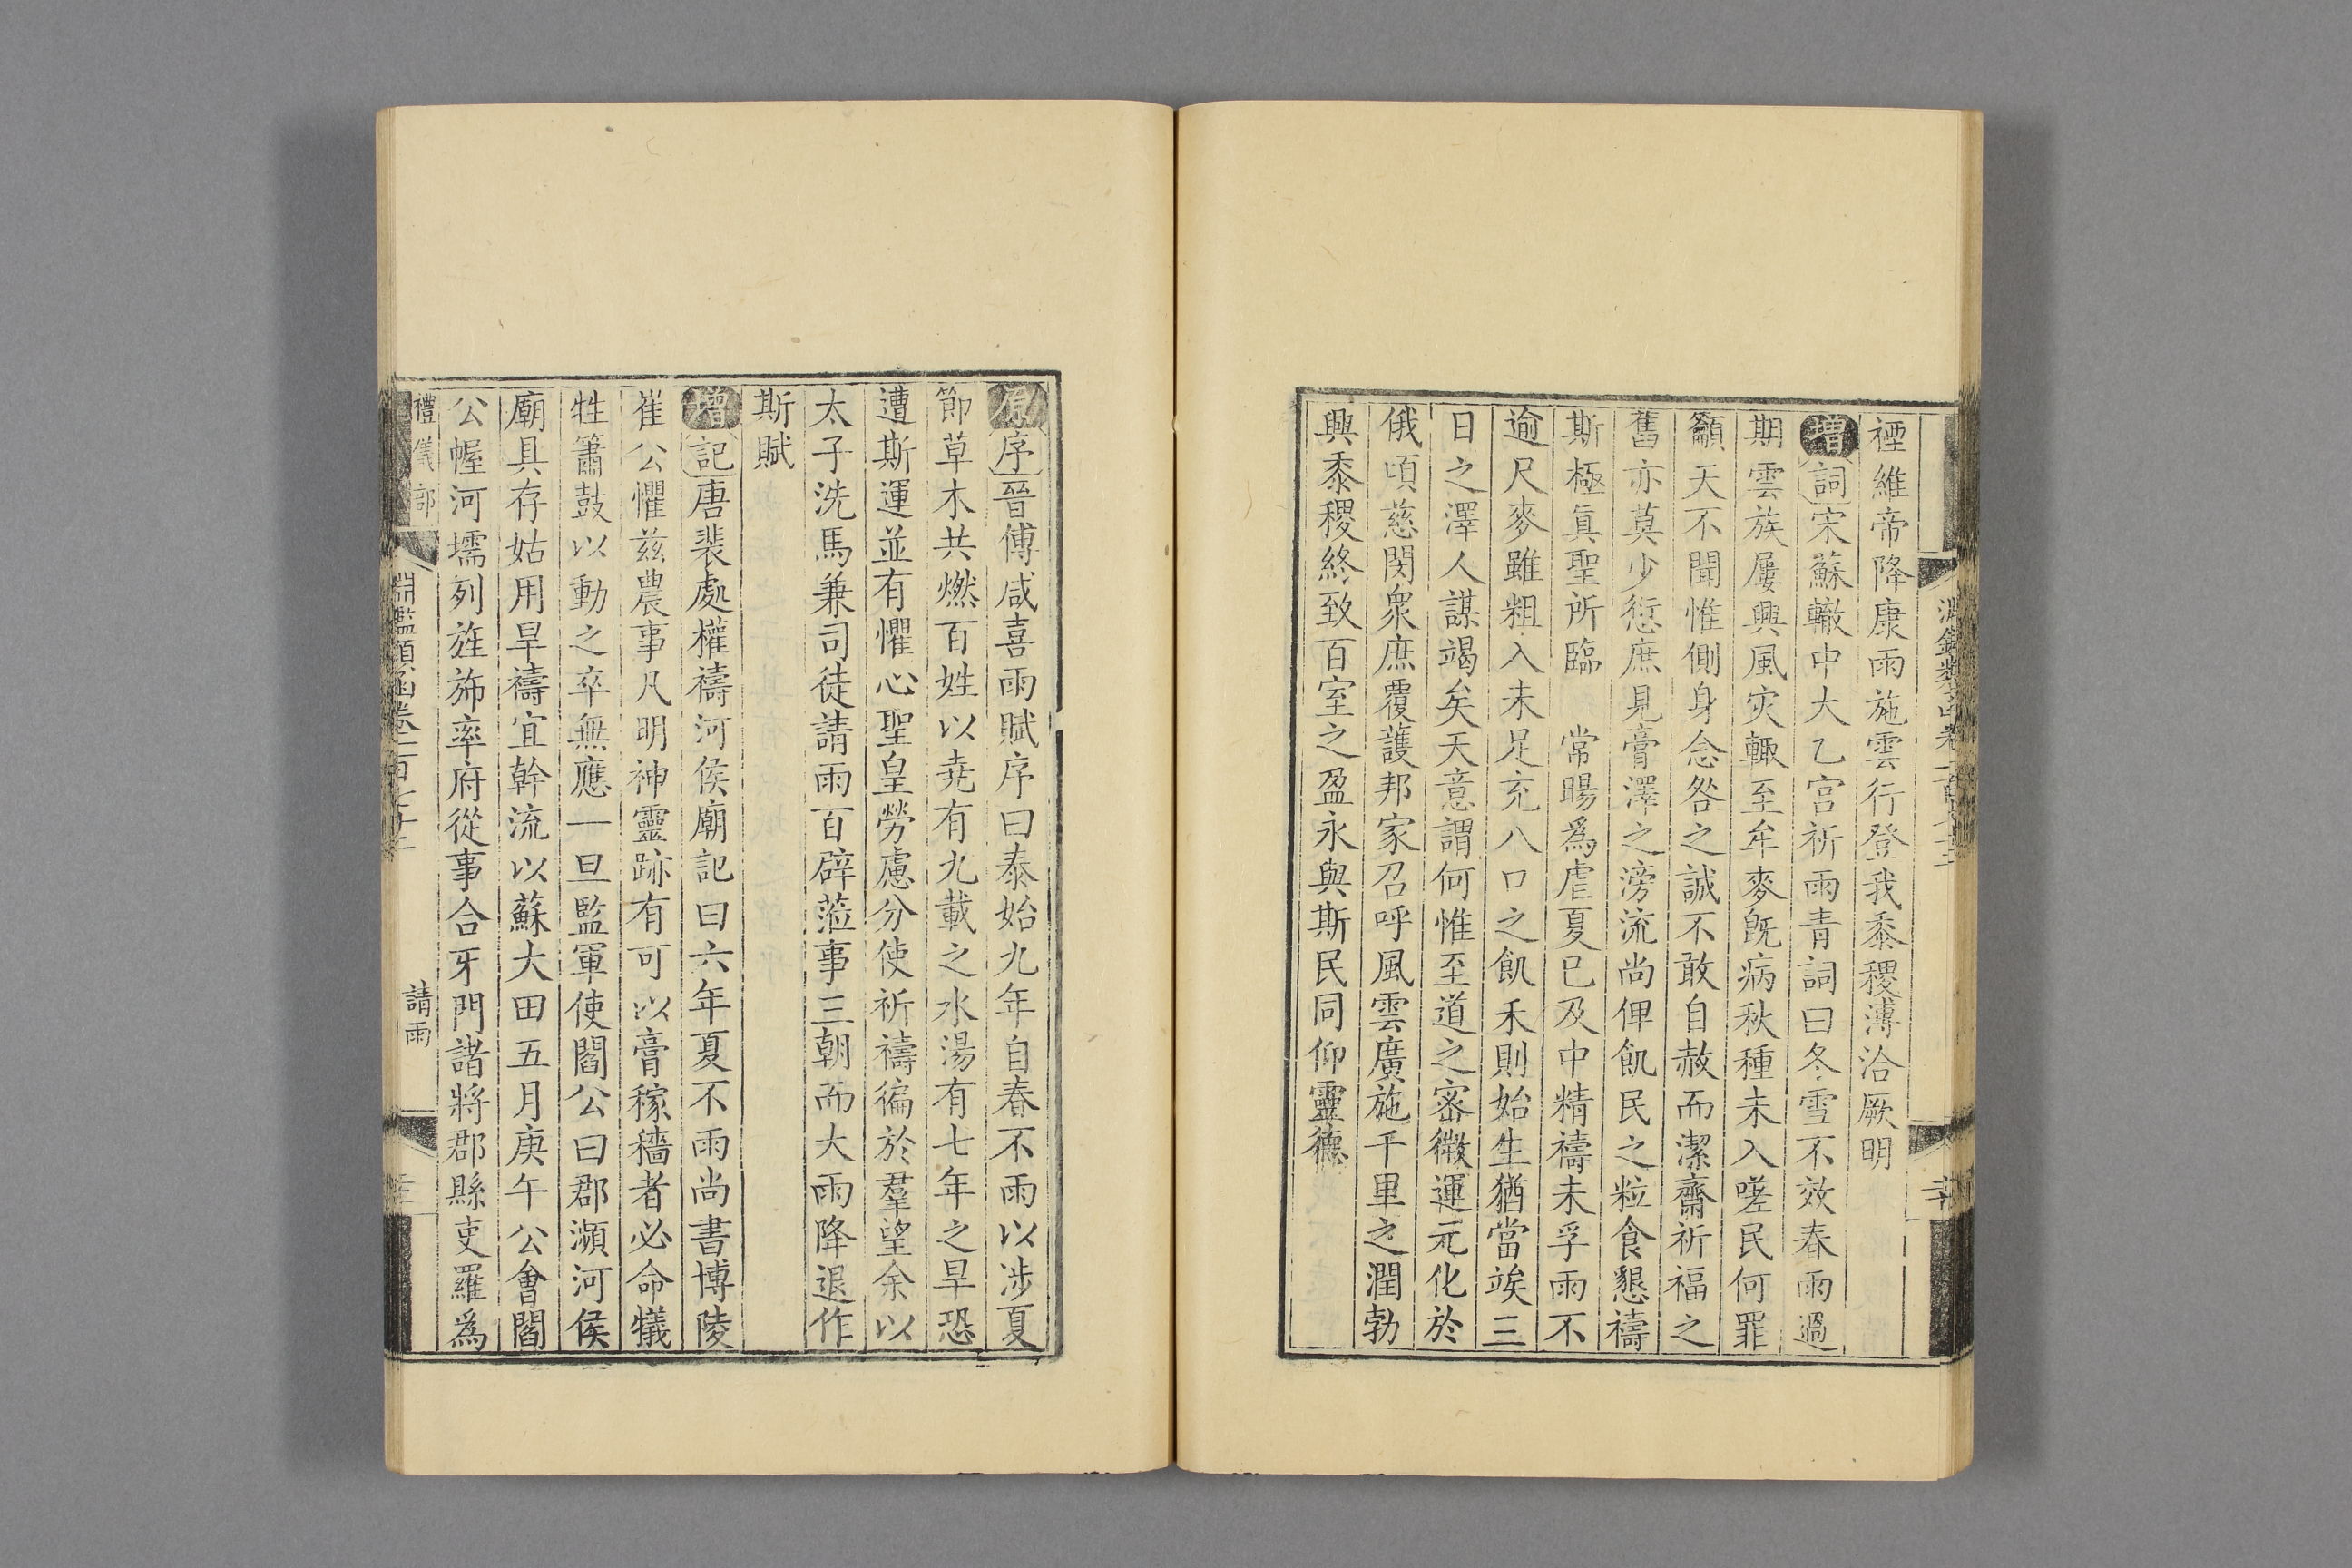 禋維帝降康雨施雲行登我黍稷溥洽厥明
增詞宋蘇轍中大乙宮祈雨青詞曰冬雪不效春雨過
期雲族屢興風灾輙至牟麥旣病秋種未入嗟民何罪
籲天不聞惟側身念咎之誠不敢自赦而潔齋祈福之
舊亦莫少愆庶見膏澤之滂流尚俾飢民之粒食懇禱
斯極眞聖所臨 常暘爲虐夏巳及中精禱未孚雨不
逾尺麥雖粗入未足充八口之飢禾則始生猶當竢三
日之澤人謀竭矣天意謂何惟至道之宻微運元化於
俄頃慈閔衆庶覆護邦家召呼風雲廣施千里之潤勃
興黍稷終致百室之盈永與斯民同仰靈德
原序晉傅咸喜雨賦序曰泰始九年自春不雨以涉夏
節草木共燃百姓以尭有九載之水湯有七年之旱恐
遭斯運並有懼心聖皇勞慮分使祈禱徧於羣望余以
太子洗馬兼司徒請雨百辟蒞事三朝而大雨降退作
斯賦
增記唐裴處權禱河侯廟記曰六年夏不雨尚書博陵
崔公懼兹農事凡明神靈跡有可以膏稼穡者必命犧
牲簫鼓以動之卒無應一旦監軍使閻公曰郡瀕河侯
廟具存姑用旱禱宜幹流以蘇大田五月庚午公會閻
公幄河壖列旌斾率府從事合牙門諸將郡縣吏羅爲
禮儀部 淵鑑類函卷一百七十二 請雨